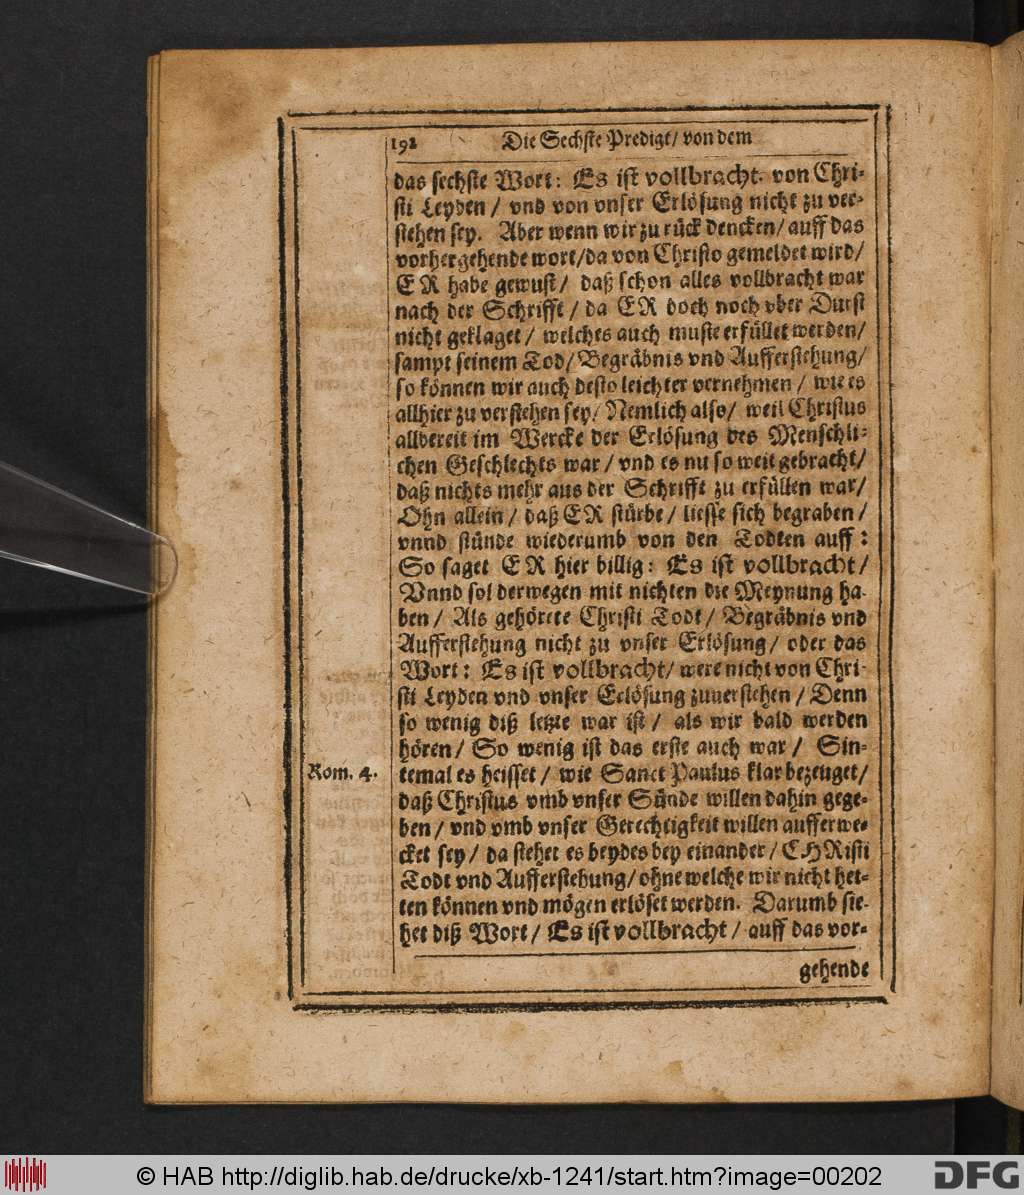 192 Die Sechste Predigt/ von dem
das sechste Wort: Es ist vollbracht. von Chri-
sti Leyden / vnd von vnser Erlösung nicht zu ver-
stehen sey. Aber wenn wir zu rück dencken/ auff das
vorhergehende wort/da von Christo gemeldet wird/
ER habe gewust/ daß schon alles vollbracht war
nach der Schrifft/ da ER doch noch vber Durst
nicht geklaget / welches auch muste erfüllet werden/
sampt seinem Tod/ Begräbnis vnd Aufferstehung/
so können wir auch desto leichter vernehmen / wie es
allhier zu verstehen sey/ Nemlich also/ weil Christus
allbereit im Wercke der Erlösung des Menschli-
chen Geschlechts war / vnd es nu so weit gebracht/
daß nichts mehr aus der Schrifft zu erfüllen war/
Ohn allein / daß ER stürbe / liesse sich begraben /
vnnd stünde wiederumb von den Todten auff:
So saget ER hier billig: Es ist vollbracht /
Vnnd sol derwegen mit nichten die Meynung ha-
ben / Als gehörete Christi Todt / Begräbnis vnd
Aufferstehung nicht zu vnser Erlösung / oder das
Wort: Es ist vollbracht/ were nicht von Chri-
sti Leyden vnd vnser Erlösung zuuerstehen / Denn
so wenig diß letzte war ist / als wir bald werden
hören / So wenig ist das erste auch war / Sin-
Rom. 4.
temal es heisset / wie Sanct Paulus klar bezeuget/
daß Christus vmb vnser Sünde willen dahin gege-
ben / vnd vmb vnser Gerechtigkeit willen aufferwe-
cket sey / da stehet es beydes bey einander / CHRisti
Todt vnd Aufferstehung / ohne welche wir nicht het-
ten können vnd mögen erlöset werden. Darumb sie-
het diß Wort / Es ist vollbracht / auff das vor-
gehende
© HAB http://diglib.hab.de/drucke/xb-1241/start.htm?image=00202
DFG